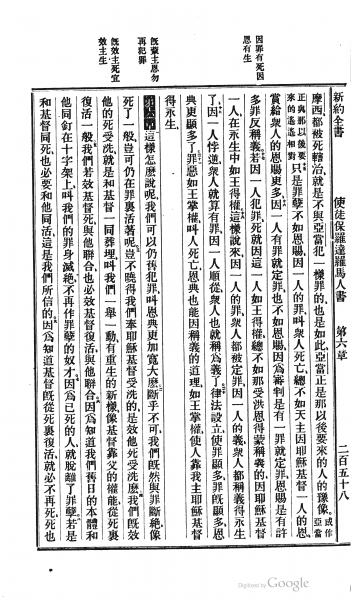 因罪有死因
恩有生
既蒙主恩勿
再犯罪
既效主死宜
效主生
新約全書 使徒保羅達羅馬人書 第六章 二百五十八
摩西都被死轄治就是不與亞當犯一樣罪的也是如此亞當正是那以後要來的人的豫像或作亞當
正與那以後要
來的遙遙相對只是罪孽不如恩賜因一人的罪叫衆人死亡總不如天主因耶穌基督一人的恩
賞給衆人的恩賜更多因一人有罪就定罪也不如恩賜因爲審判是有一罪就定罪恩賜是有許
多罪反稱義若因一人犯罪死就因這一人如王得權總不如那受洪恩得蒙稱義的因耶穌基督
一人在永生中如王得權這樣說來因一人的罪衆人都被定罪因一人的義衆人都稱義得永生
了因一人悖逆衆人就算有罪因一人順從衆人也就稱爲義了律法設立使罪顯多罪既顯多恩
典更顯多了罪惡如王掌權叫人死亡恩典也能因稱義的道理如王掌權使人靠我主耶穌基督
得永生
第六章這樣怎麽說呢我們可以仍舊犯罪叫恩典更加寬大麽斷乎不可我們既然與罪斷絶像
死了一般豈可仍在罪裏活著呢豈不曉得我們奉耶穌基督受洗的是效他死受洗麽我們既效
他的死受洗就是和基督一同葬埋叫我們一舉一動有重生的新樣像基督靠父的權能從死裏
復活一般我們若效基督死與他聯合也必效基督復活與他聯合因爲知道我們舊日的本體和
他同釘在十字架上叫我們的罪身滅絶不再作罪孽的奴才因爲已死的人就脫離了罪孽若是
和基督同死也必要和他同活這是我們所信的因爲知道基督既從死裏復活就必不再死死也
Digitized by Google